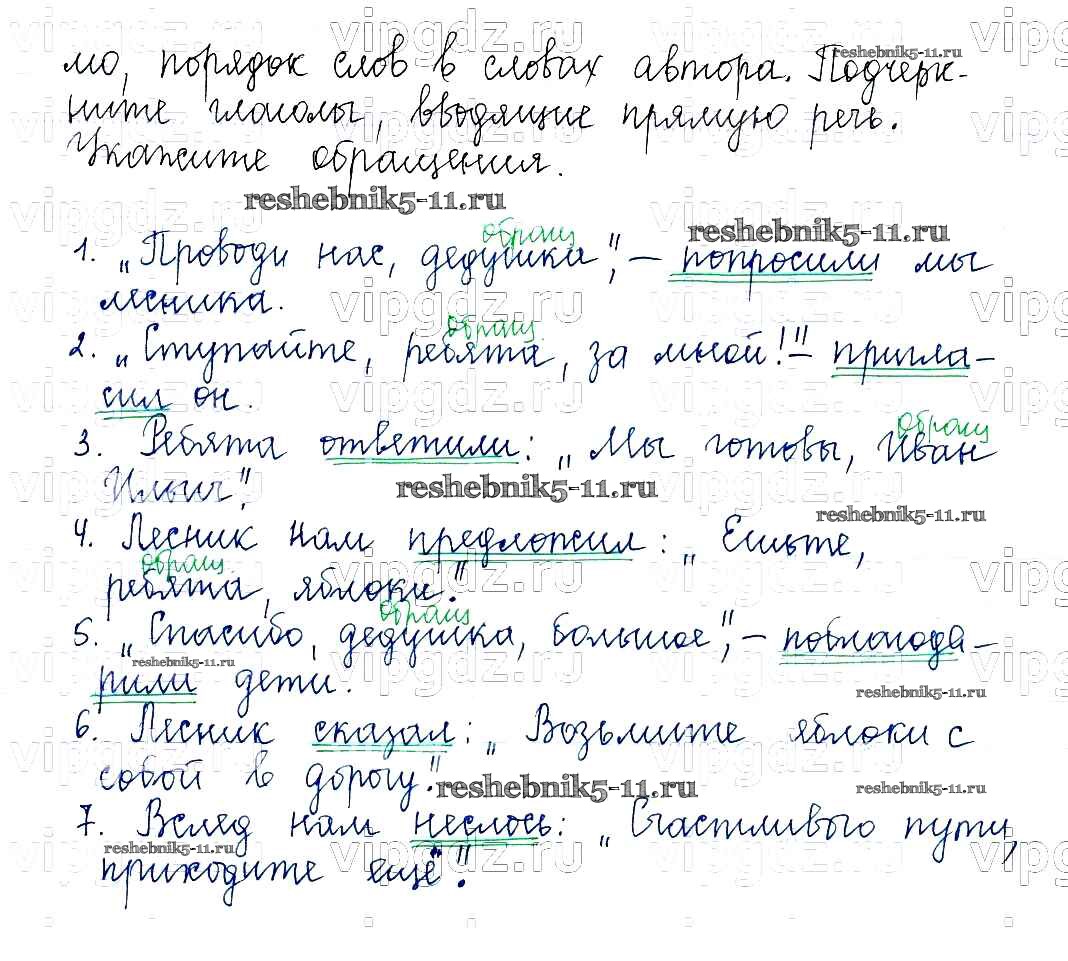 мо, порядок слов в словах автора. Подчерк-
ните глаголы, вводящие прямую речь.
Укажите обращения.
reshebnik5-11.ru
обращ
1. „Проводи нас, дедушка", – попросили мы
лесника.
обращ
2. „Ступайте, ребята, за мной!" – пригла-
сил он.
обращ
3. Ребята ответили: „Мы готовы, Иван
Ильич".
4. Лесник нам предложил: „Ешьте,
обращ
ребята, яблоки."
обращ
5. „Спасибо, дедушка, большое", – поблагода-
рили дети.
6. Лесник сказал: „Возьмите яблоки с
собой в дорогу".
7. Вслед нам неслось: „Счастливого пути,
приходите ещё".
vipgdz.ru